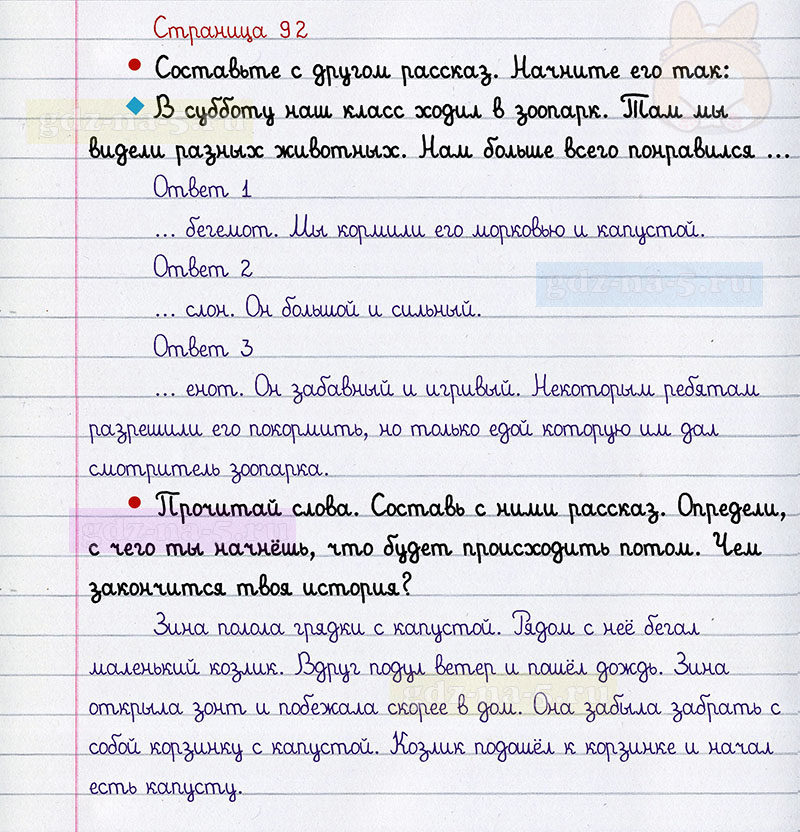 Страница 92
• Составьте с другом рассказ. Начните его так:
В субботу наш класс ходил в зоопарк. Там мы
gdz-na-5.ru
видели разных животных. Нам больше всего понравился ...
Ответ 1
... бегемот. Мы кормили его морковью и капустой.
Ответ 2
gdz-na-5.ru
... слон. Он большой и сильный.
Ответ 3
... енот. Он забавный и игривый. Некоторым ребятам
разрешили его покормить, но только едой которую им дал
смотритель зоопарка.
• Прочитай слова. Составь с ними рассказ. Определи,
gdz-na-5.ru
с чего ты начнёшь, что будет происходить потом. Чем
закончится твоя история?
Зина полола грядки с капустой. Рядом с неё бегал
маленький козлик. Вдруг подул ветер и пошёл дождь. Зина
gdz-na-5.ru
открыла зонт и побежала скорее в дом. Она забыла забрать с
собой корзинку с капустой. Козлик подошёл к корзинке и начал
есть капусту.